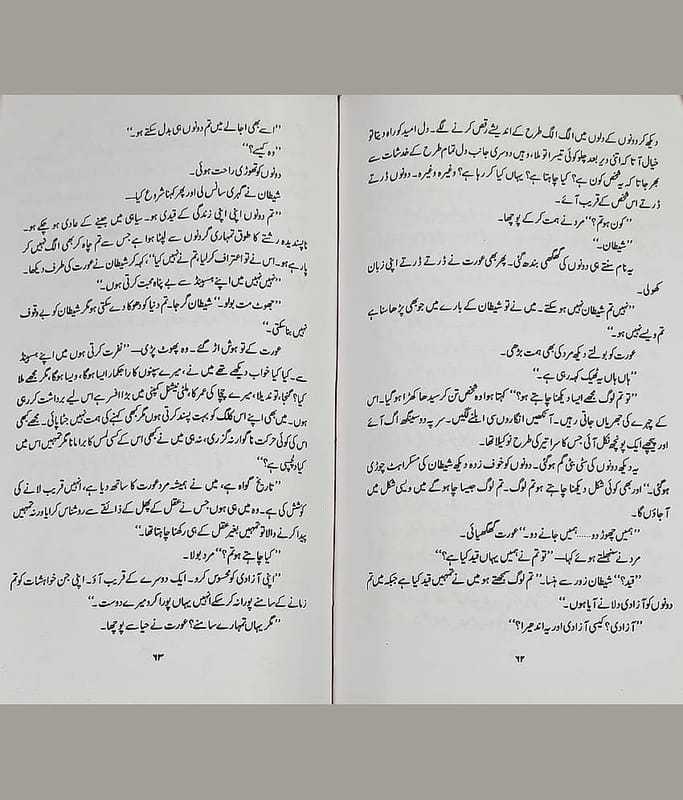 دیکھ کر دونوں کے دلوں میں الگ الگ طرح کے اندیشے رقص کرنے لگے۔ دل امید کو راہ دیتا تو
خیال آتا کہ اتنی دیر بعد چلو کوئی تیسرا تو ملا، وہیں دوسری جانب دل تمام طرح کے خدشات سے
بھر جاتا کہ یہ شخص کون ہے؟ کیا چاہتا ہے؟ یہاں کیا کر رہا ہے؟ وغیرہ وغیرہ۔ دونوں ڈرتے
ڈرتے اس شخص کے قریب آئے۔
’’کون ہو تم؟‘‘ مرد نے ہمت کر کے پوچھا۔
’’شیطان۔‘‘
یہ نام سنتے ہی دونوں کی گھگھی بندھ گئی۔ پھر بھی عورت نے ڈرتے ڈرتے اپنی زبان
کھولی۔
’’نہیں تم شیطان نہیں ہو سکتے۔ میں نے تو شیطان کے بارے میں جو بھی پڑھا سنا ہے
تم ویسے نہیں ہو۔‘‘
عورت کو بولتے دیکھ مرد کی بھی ہمت بڑھی۔
’’ہاں ہاں یہ ٹھیک کہہ رہی ہے۔‘‘
’’تو تم لوگ مجھے ایسا دیکھنا چاہتے ہو؟‘‘ کہتا ہوا وہ شخص تن کر سیدھا کھڑا ہو گیا۔ اس
کے چہرے کی جھریاں جاتی رہیں۔ آنکھیں انگاروں سی ابلنے لگیں۔ سر پہ دو سینگھ اگ آئے
اور پیچھے ایک پونچھ نکل آئی جس کا سرا تیر کی طرح نوکیلا تھا۔
یہ دیکھ دونوں کی سٹی پٹی گم ہو گئی۔ دونوں کو خوف زدہ دیکھ شیطان کی مسکراہٹ چوڑی
ہو گئی۔ ’’اور بھی کوئی شکل دیکھنا چاہتے ہو تم لوگ۔ تم لوگ جیسا چاہو گے میں ویسی شکل میں
آ جاؤں گا۔
’’ہمیں چھوڑ دو......ہمیں جانے دو۔‘‘ عورت گھگھیائی۔
مرد نے سنبھلتے ہوئے کہا— ’’تو تم نے ہمیں یہاں قید کیا ہے؟‘‘
’’قید؟‘‘ شیطان زور سے ہنسا۔ ’’تم لوگ سمجھتے ہو میں نے تمہیں قید کیا ہے جبکہ میں تم
دونوں کو آزادی دلانے آیا ہوں۔‘‘
’’آزادی؟ کیسی آزادی اور یہ اندھیرا؟‘‘
۶۲
’’اسے بھی اجالے میں تم دونوں ہی بدل سکتے ہو۔‘‘
’’وہ کیسے؟‘‘
دونوں کو تھوڑی راحت ہوئی۔
شیطان نے گہری سانس لی اور پھر کہنا شروع کیا—
’’تم دونوں اپنی اپنی زندگی کے قیدی ہو۔ سیاہی میں جینے کے عادی ہو چکے ہو۔
ناپسندیدہ رشتے کا طوق تمہاری گردنوں سے لپٹا ہوا ہے جس سے تم چاہ کر بھی الگ نہیں کر
پا رہے ہو۔ اس نے تو اعتراف کر لیا، تم نے نہیں کیا‘‘ کہہ کر شیطان نے عورت کی طرف دیکھا۔
’’نہیں نہیں میں اپنے ہسبینڈ سے بے پناہ محبت کرتی ہوں۔‘‘
’’جھوٹ مت بولو۔‘‘ شیطان گرجا۔ تم دنیا کو دھوکا دے سکتی ہو مگر شیطان کو بے وقوف
نہیں بنا سکتی۔‘‘
عورت کے تو ہوش اڑ گئے۔ وہ پھوٹ پڑی— ’’نفرت کرتی ہوں میں اپنے ہسبینڈ
سے۔ کیا کیا خواب دیکھے تھے میں نے، میرے سپنوں کا راجکمار ایسا ہوگا، ویسا ہوگا، مگر مجھے ملا
کیا؟ گنجا، توندیلا، میرے چچا کی عمر کا، ملٹی نیشنل کمپنی میں بڑا افسر ہے اس لیے برداشت کر رہی
ہوں۔ میں بھی اپنے اس کلگ کو بہت پسند کرتی ہوں مگر کبھی کہنے کی ہمت نہیں جٹا پائی۔ مجھے کبھی
اس کی کوئی حرکت ناگوار نہ گزری، نہ ہی میں نے کبھی اس کے کسی لمس کا برا مانا مگر تمہیں اس میں
کیا دلچسپی ہے؟‘‘
’’تاریخ گواہ ہے، میں نے ہمیشہ مرد عورت کا ساتھ دیا ہے، انہیں قریب لانے کی
کوشش کی ہے۔ وہ میں ہی ہوں جس نے عقل کے پھل کے ذائقے سے روشناس کرایا ورنہ تمہیں
پیدا کرنے والا تو تمہیں بغیر عقل کے ہی رکھنا چاہتا تھا۔‘‘
’’کیا چاہتے ہو تم؟‘‘ مرد بولا۔
’’اپنی آزادی کو محسوس کرو۔ ایک دوسرے کے قریب آؤ۔ اپنی جن خواہشات کو تم
زمانے کے سامنے پورا نہ کر سکے انہیں یہاں پورا کرو میرے دوست۔‘‘
’’مگر یہاں تمہارے سامنے؟ عورت نے حیا سے پوچھا۔
۶۳